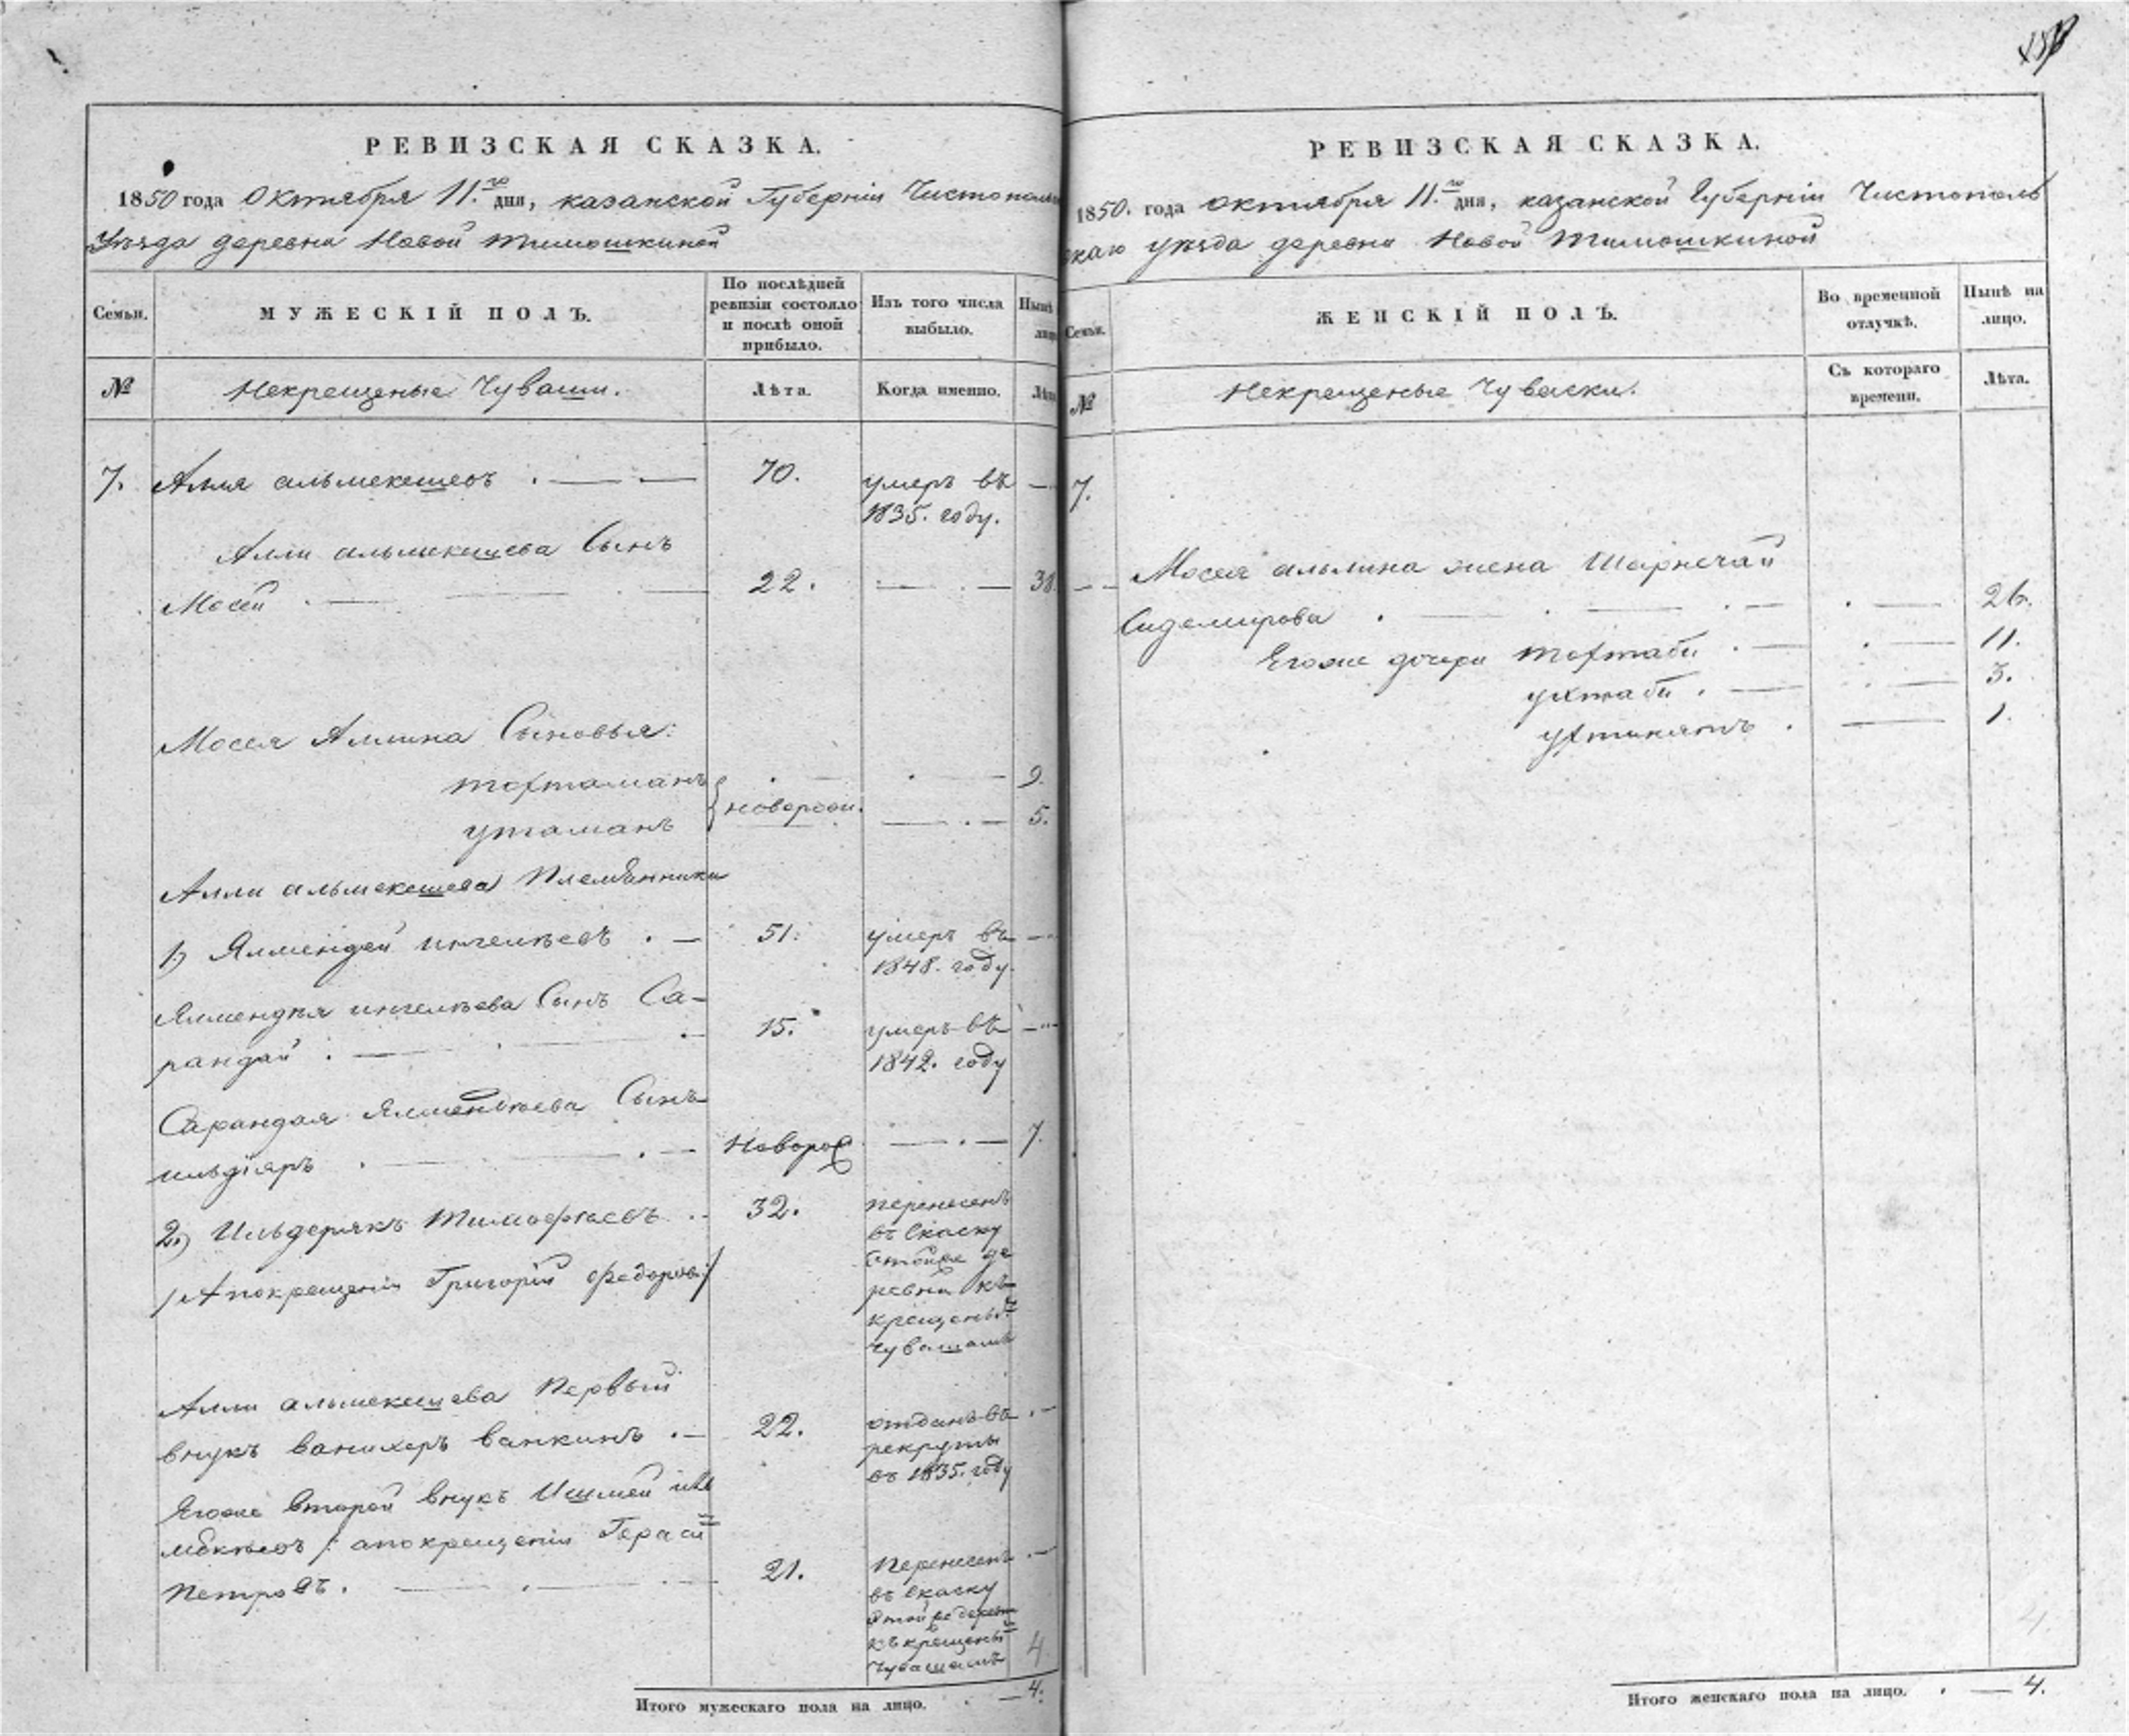 РЕВИЗСКАЯ СКАЗКА.
1850 года Октября 11.го дня, казанской Губерніи Чистополь
Уѣзда деревни Новой Тимошкиной
Семьи.
МУЖЕСКІЙ ПОЛЪ.
По послѣдней ревизіи состояло и послѣ оной прибыло.
Изъ того числа выбыло.
Нынѣ лицо
№
Некрещеные Чуваши.
Лѣта.
Когда именно.
Лѣта
7. Алля альмекешевъ . — . — 70. умеръ въ —
1835. году.
Алли альмекешева Сынъ
Мосей . — — . — 22. — . — 38.
Мосея Аллина Сыновья:
тохтаманъ . — . — 9.
новорож.
утаманъ — . — 5.
Алли альмекешева Племянники
1) Ялмендей ингелѣевъ . — 51. умеръ въ —
1848. году.
Ялмендѣя ингелѣева Сынъ Са-
рандай . — . — 15. умеръ въ —
1842. году
Сарандая Ялмендѣева Сынъ
ильдіяръ . — . — Новорож — . — 7.
2.) Ильдерякъ Тимофѣевъ . . 32. перенесенъ
въ Скаску
/ А покрещеніи Григорій Федоровъ /
этойже де
ревни къ
крещены͞
Чувашамъ
Алли альмекешева Первый
внукъ ванихеръ ванкинъ . — 22. отданъ въ . —
рекруты
въ 1835. году
Егоже второй внукъ Ишмей
/ апокрещеніи Гераси͞
Петровъ. — . — . — 21. Перенесенъ . —
въ Скаску
этой же деревни
къ крещены͞
Чувашамъ
4
Итого мужескаго пола на лицо. . — 4.
РЕВИЗСКАЯ СКАЗКА.
1850. года октября 11.го дня, казанской Губерніи Чистополь
скаго уѣзда деревни Новой Тимошкиной
Семьи.
ЖЕНСКІЙ ПОЛЪ.
Во временной отлучкѣ.
Нынѣ на лицо.
№
Некрещеные Чуваски.
Съ котораго времени.
Лѣта.
7.
Мосея альлина жена Шарнечай
Сидемирова . — . — . — . — 26.
Егоже дочери тохтаби . — . — 11.
ухтаби . — . — 3.
ухтинять . — 1.
4
Итого женскаго пола на лицо. . — 4.